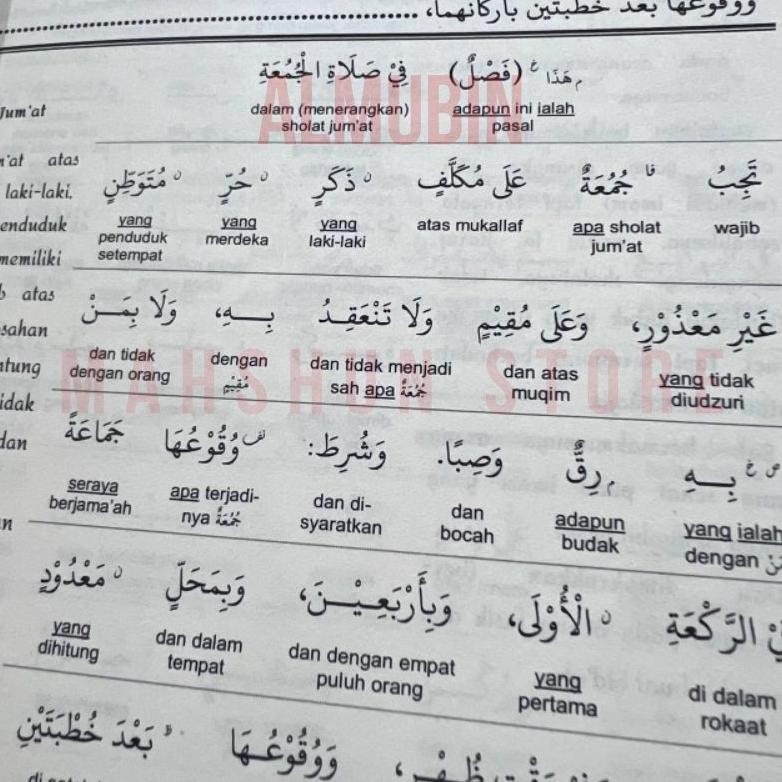 ووقوعها بعد خطبتين بأركانهما،
م هَذَا خ (فَصْلٌ) فِيْ صَلَاةِ الْجُمُعَةِ
adapun ini ialah pasal dalam (menerangkan) sholat jum'at
Jum'at
ALMUBIN
تَجِبُ فا جُمُعَةٌ عَلَى مُكَلَّفٍ ن ذَكَرٍ ن حُرٍّ ن مُتَوَطِّنٍ
wajib apa sholat jum'at atas mukallaf yang laki-laki yang merdeka yang penduduk setempat
atas
laki-laki,
enduduk
memiliki
غَيْرِ مَعْذُوْرٍ، وَعَلَى مُقِيْمٍ وَلَا تَنْعَقِدُ بِـهِ، وَلَا بِمَنْ
yang tidak diudzuri dan atas muqim dan tidak menjadi sah apa جُمُعَةٌ dengan مُقِيْمٌ dan tidak dengan orang
atas
sahan
ntung
idak
dan
MAHSHUN STORE
ص خ بِـهِ م رِقٌّ وَصِبًا. وَشُرِطَ: وُقُوْعُهَا جَمَاعَةً
yang ialah dengan adapun budak dan bocah dan di-syaratkan apa terjadi-nya جُمُعَةٌ seraya berjama'ah
الرَّكْعَةِ ن الْأُوْلَى، وَبِأَرْبَعِـيْـنَ، وَبِمَحَلٍّ ن مَعْدُوْدٍ
di dalam rokaat yang pertama dan dengan empat puluh orang dan dalam tempat yang dihitung
ظُهْرٍ، وَوُقُوْعُـهَا بَعْدَ خُطْبَتَيْنِ